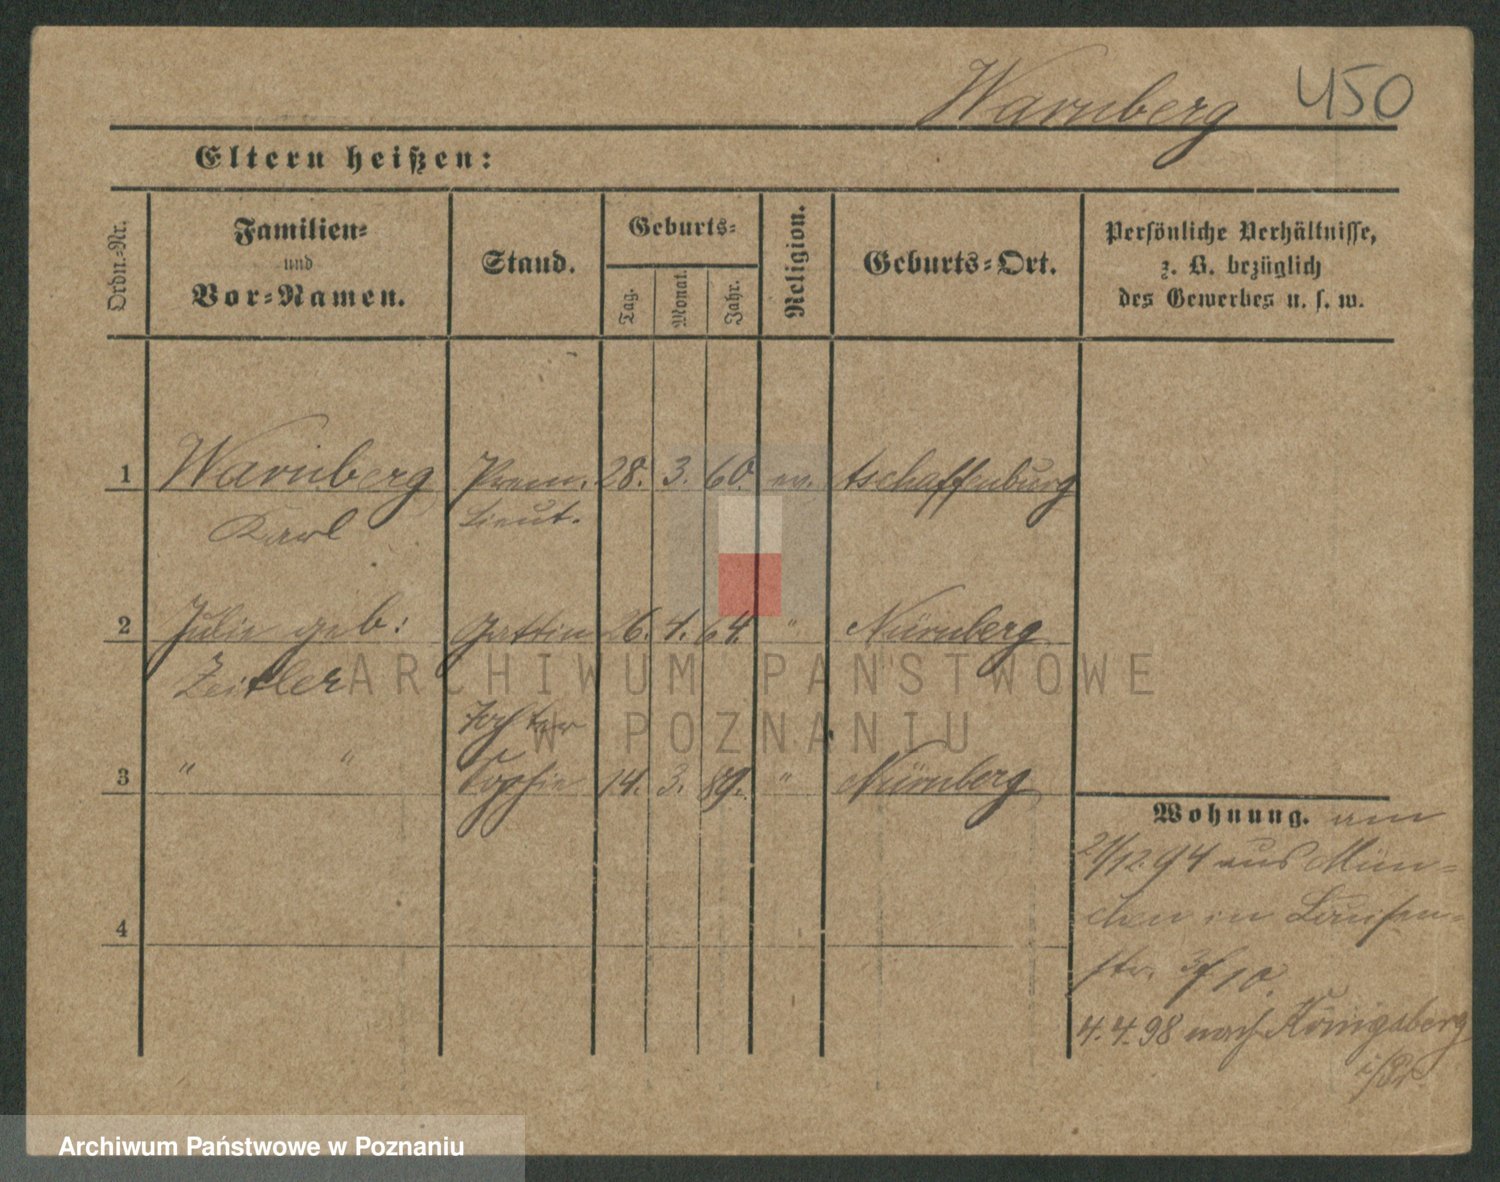 Warnberg 450
Eltern heißen:
Ordn.-Nr.
Familien-
und
Vor-Namen.
Stand.
Geburts-
Tag.
Monat.
Jahr.
Religion.
Geburts-Ort.
Persönliche Verhältnisse,
z. B. bezüglich
des Gewerbes u. s. w.
1 Warnberg Prem. 28. 3. 60. ev. Aschaffenburg
Karl Lieut.
2 Julie geb: Gattin 26. 4. 64. " Nürnberg
Zeitler
Tochter
3 " " Sophie 14. 3. 89. " Nürnberg
Wohnung. am
21/12 94 aus Mün-
chen in Louisen-
4
str. 10.
4.4.98 nach Königsberg
i/Pr.
ARCHIWUM PAŃSTWOWE
W POZNANIU
Archiwum Państwowe w Poznaniu